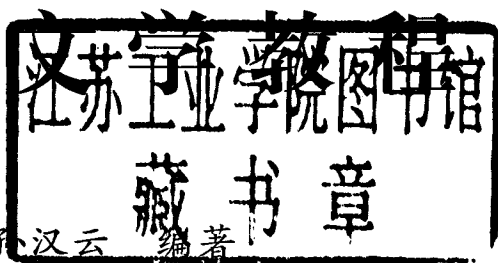 文学教程
江苏工业学院图书馆
藏书章
孙汉云 编著